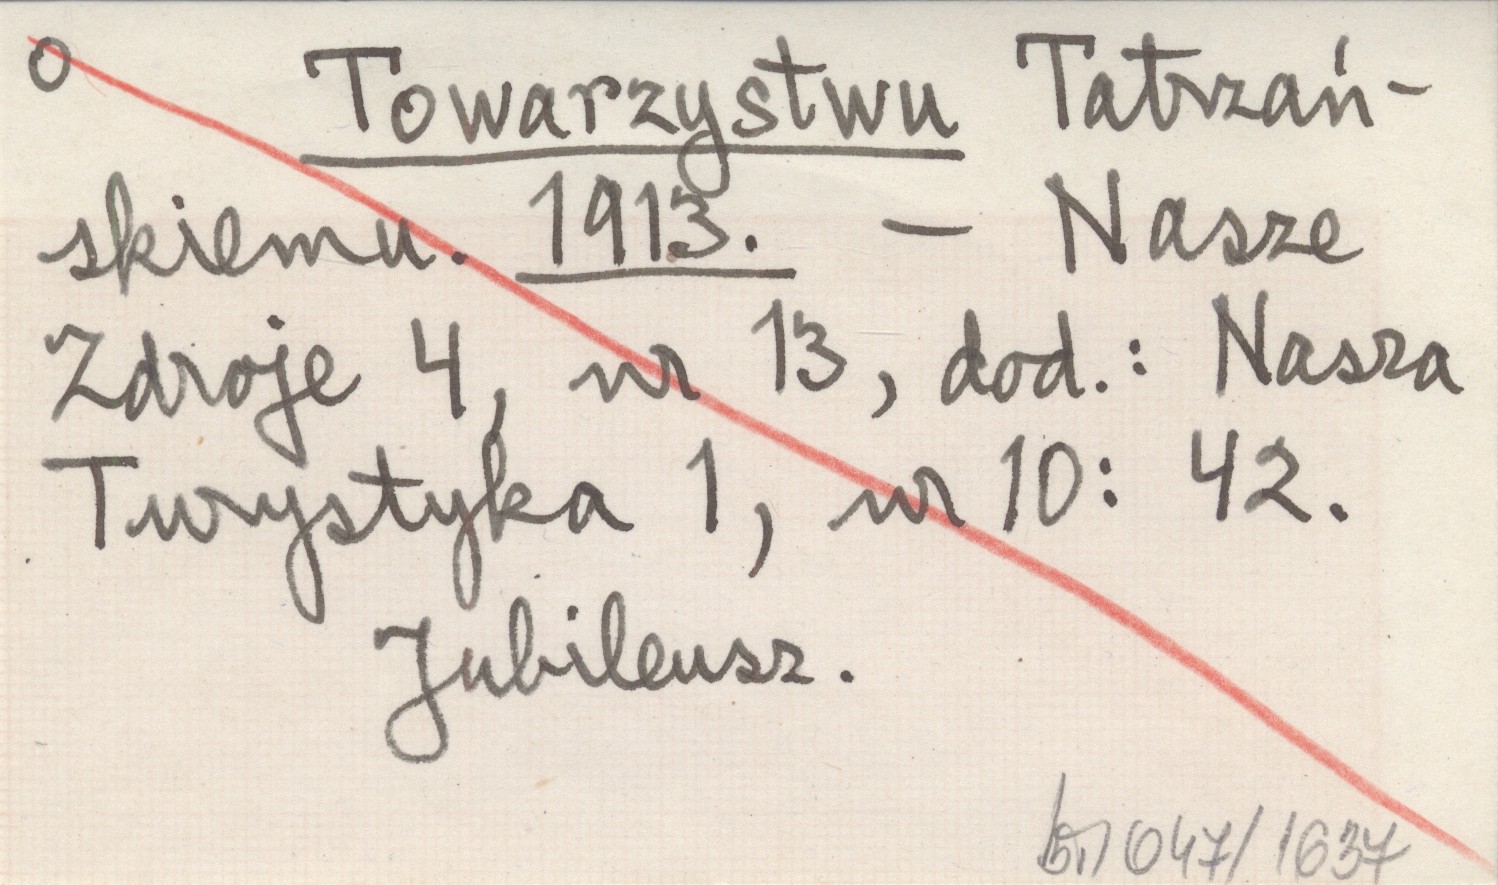 o Towarzystwu Tatrzań-
skiemu. 1913. — Nasze
Zdroje 4, nr 13, dod.: Nasza
Turystyka 1, nr 10: 42.
Jubileusz.
047/1637